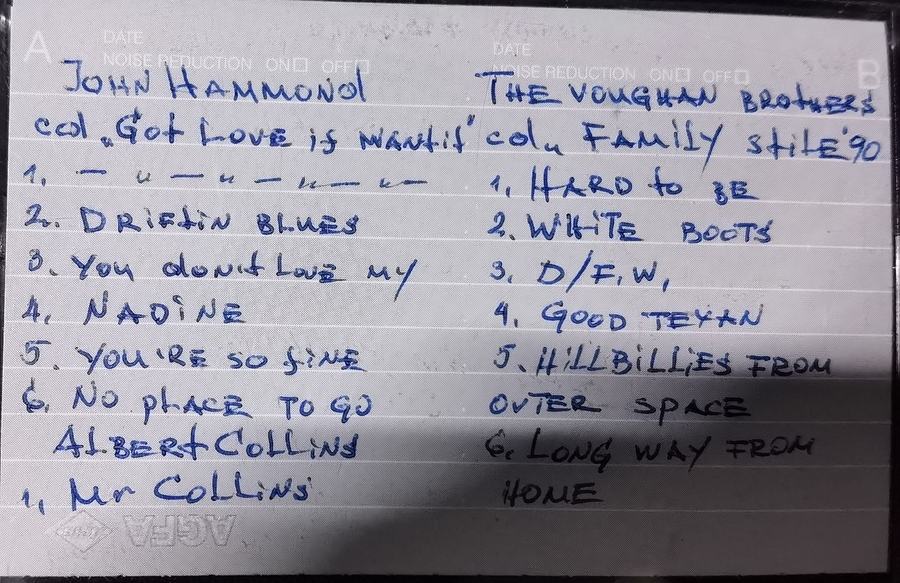 A
DATE
NOISE REDUCTION ON OFF
JOHN HAMMOND
col „Got LOVE if WANtit"
1. — " — " — " — " —
2. DRiFtiN BLUES
3. You don't Love MY
4. NADiNE
5. YOU'RE SO fiNE
6. NO PLACE TO GO
ALBERT COLLiNS
1, Mr COLLiNS
AGFA
DATE
NOISE REDUCTION ON OFF
B
THE VOUGHAN BROtHERS
col„ FAMiLY StiLE '90
1, HARD to BE
2. WHiTE BOOTS
3, D/F.W,
4. GOOD TEXAN
5. HiLLBiLLiES FROM
OUTER SPACE
6. LONG WAY FROM
HOME